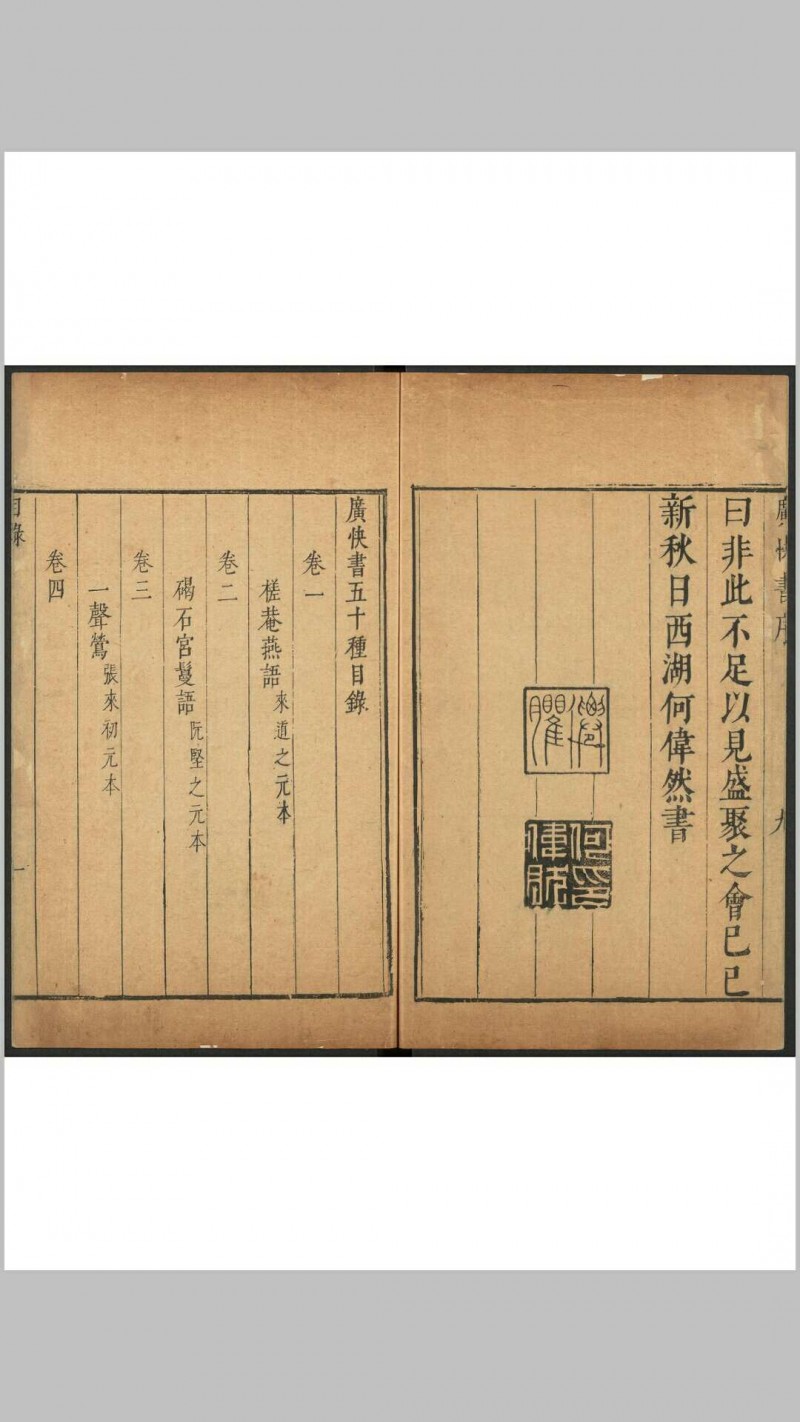 廣快書序
九
曰非此不足以見盛聚之會已已
新秋日西湖何偉然書
廣快書五十種目錄
卷一
槎菴燕語 來道之元本
卷二
碣石宮鬘語 阮堅之元本
卷三
一聲鶯 張來初元本
卷四
目錄
一